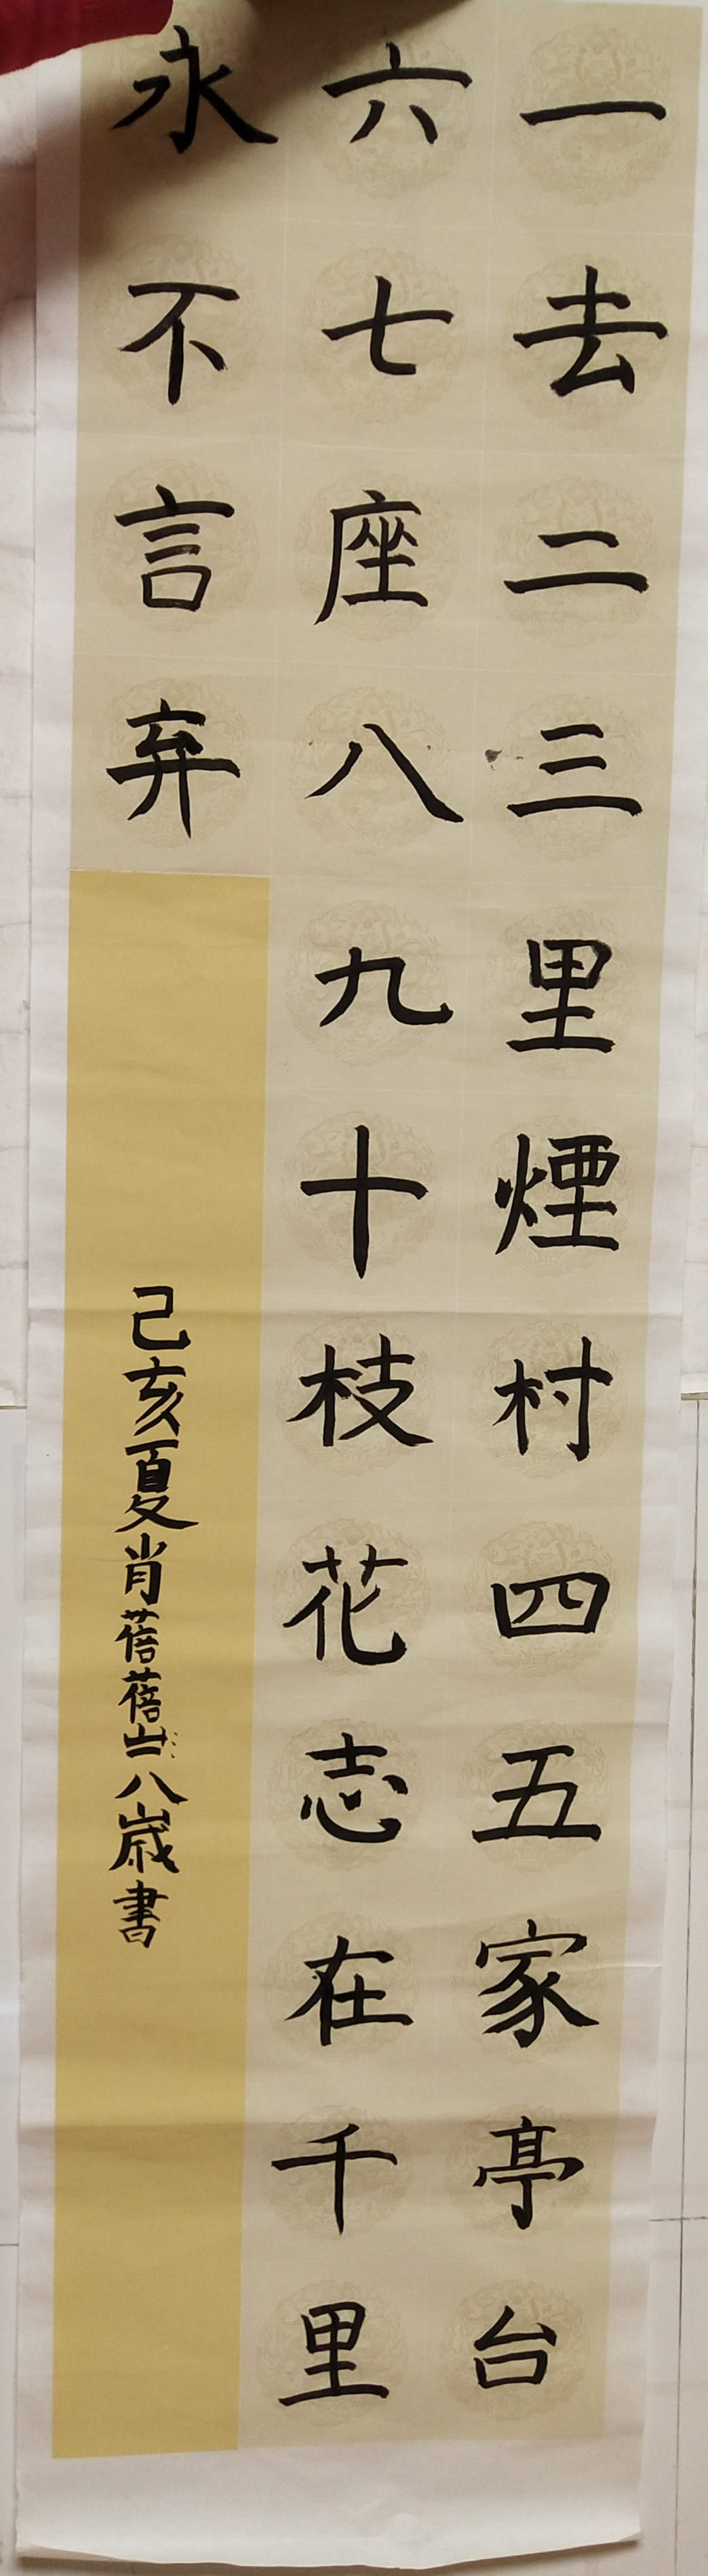 一去二三里煙村四五家亭台
六七座八九十枝花志在千里
永不言弃
己亥夏肖蓓蓓八嵗書